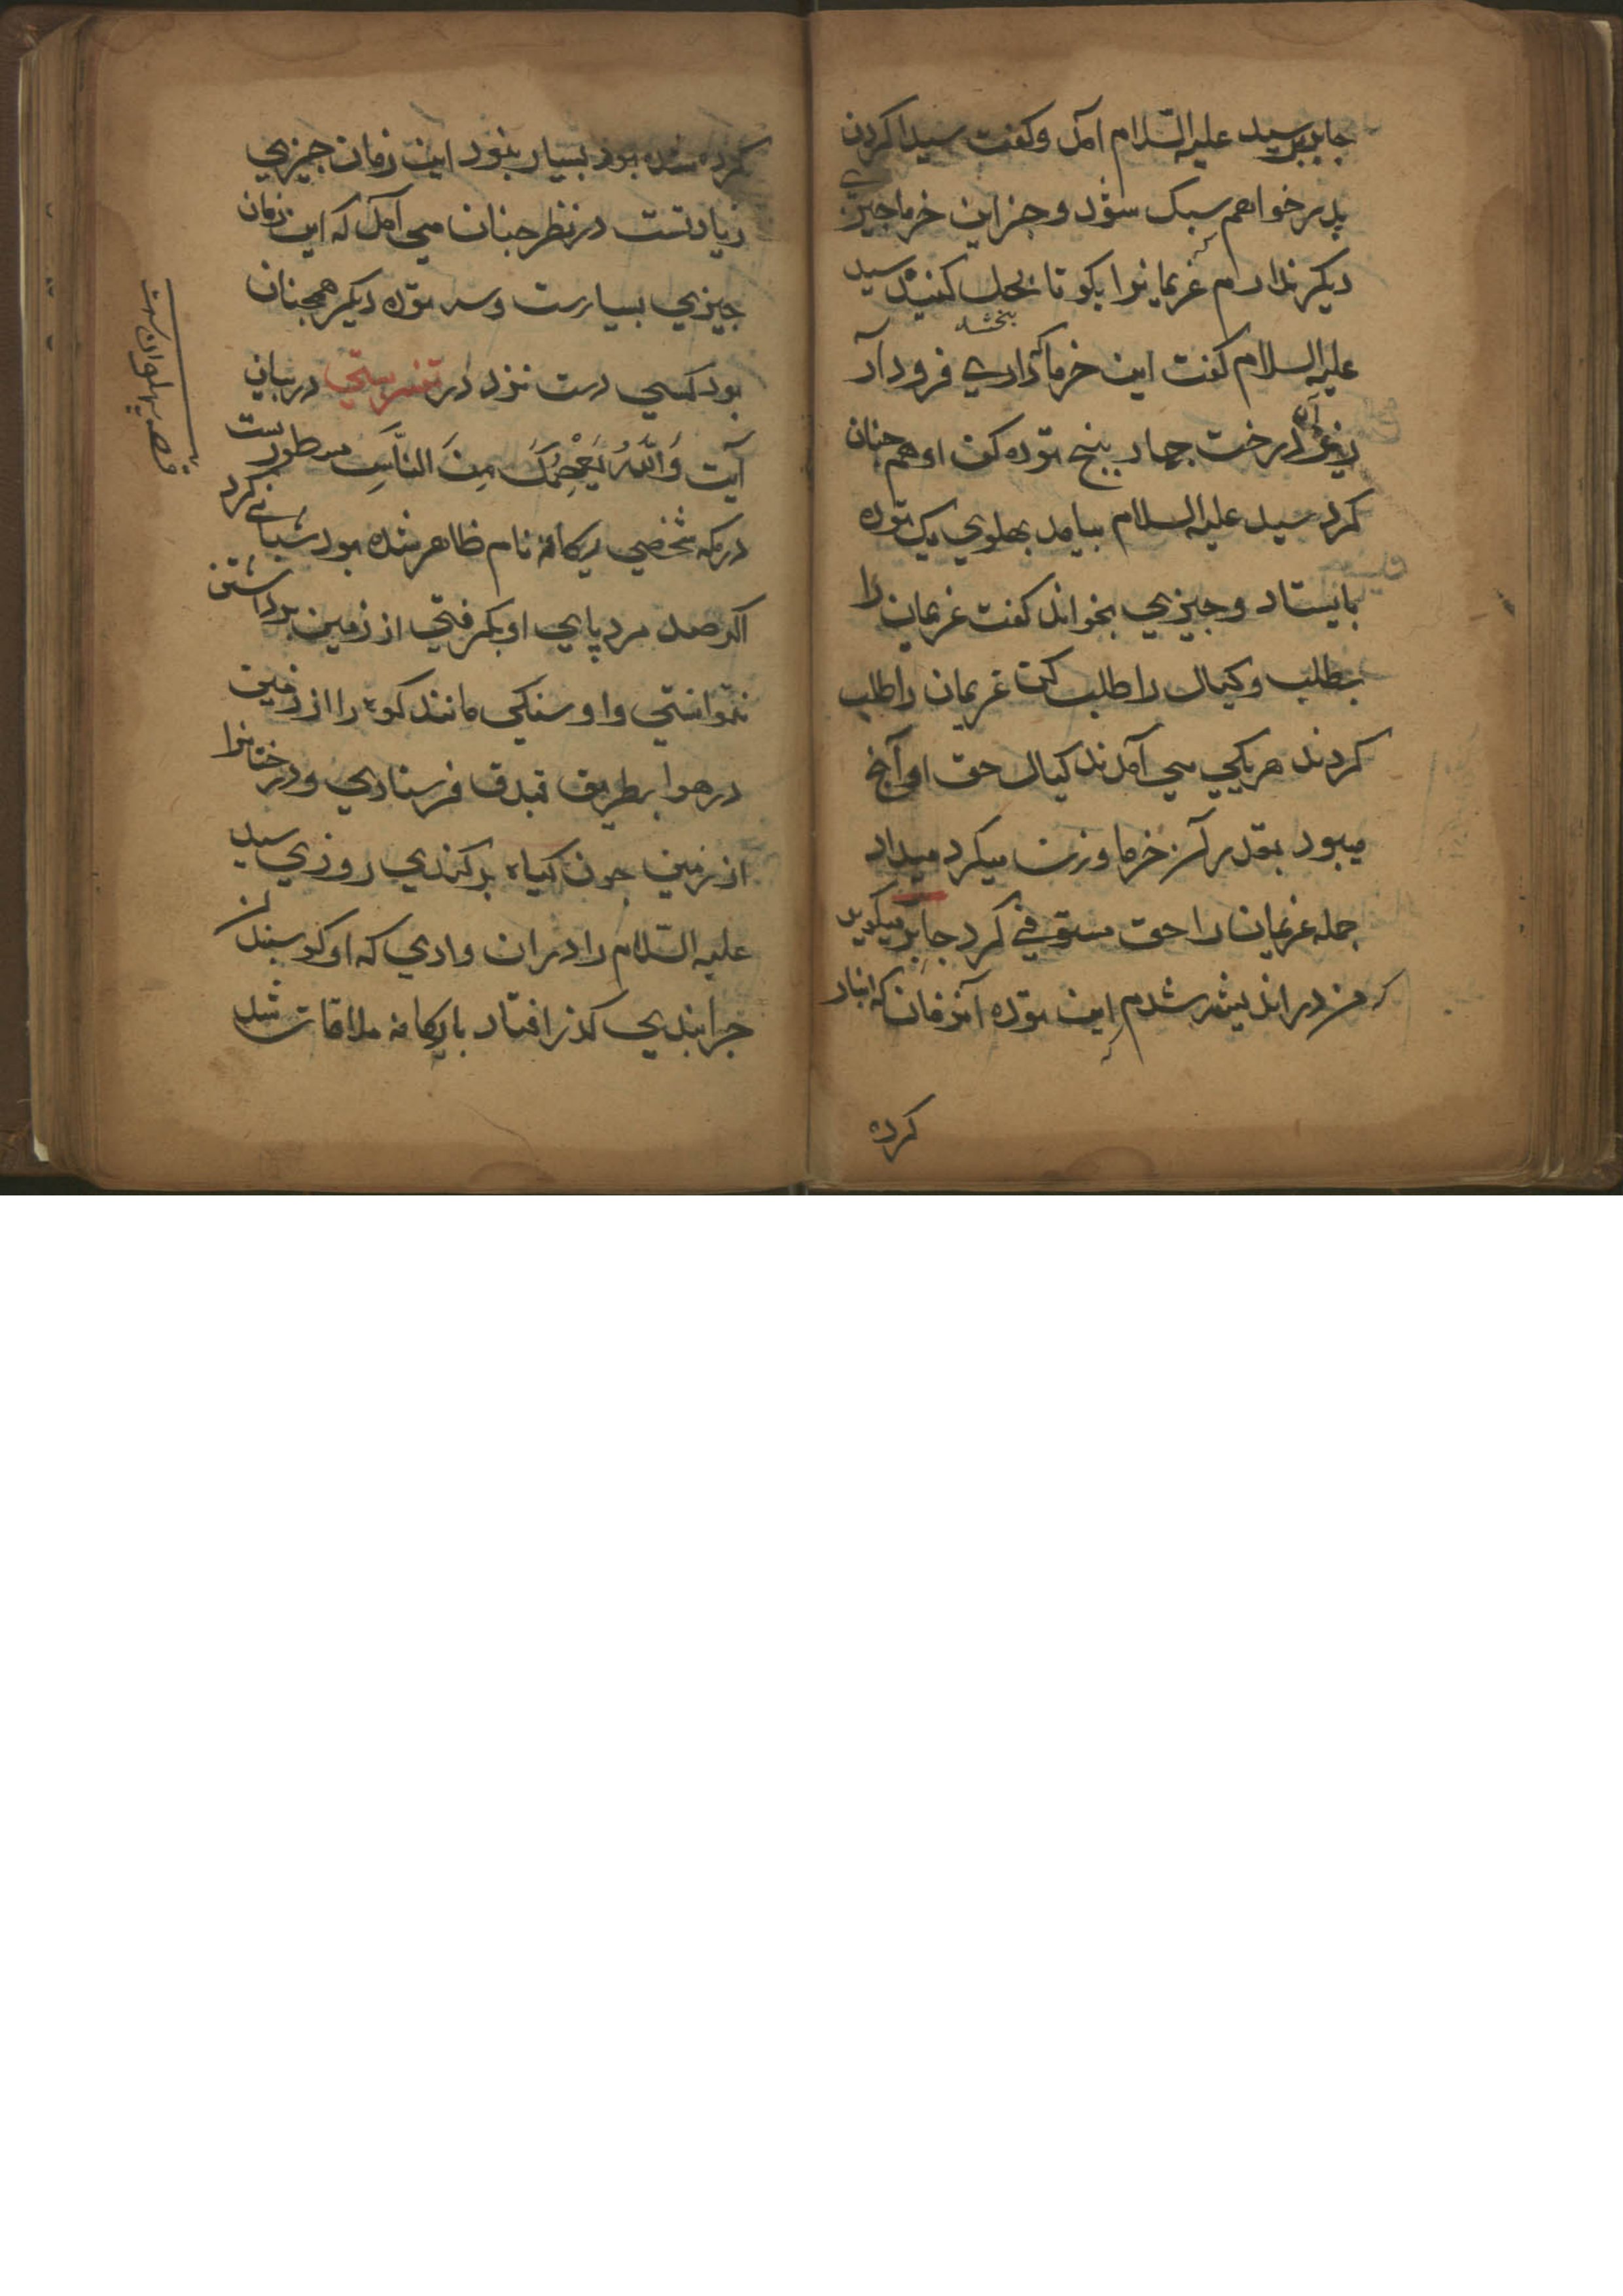 جابر بر سید علیه السّلام آمد وکفت سیدا کردن
پدر خواهم سبک شود و جز این خرما چیزی
دیکر ندارم غریمانرا بکو تا بحل کنند سید
بخشد
علیه السلام کفت این خرما که داری فرود آر
زیر درخت چهار پنج توده کن او هم چنان
کرد سید علیه السلام بیامد بهلوی یک توده
بایستاد و چیزی بخواند کفت غریمان را
بطلب وکیال را طلب کن غریمان را طلب
کردند هر یکی می آمدند کیال حق او آنچ
میبود بقدر آن خرما وزن میکرد میداد
جمله غریمان را حق مستوفی کرد جابر میکوید
که من در اندیشه شدم این توده آنزمان که انبار
کرده
کرده شده بود بسیار بنود این زمان جیزی
زیادتست در نظر جنان می آمد که این زمان
جیزی بسیارست وسه توده دیکر همجنان
بود کسی دست نزد در تفسر بستی در بیان
آیت وَاللَّهُ يَعْصِمُكَ مِنَ النَّاسِ مسطورست
در مکه شخصی رکانه نام ظاهر شده بود شبانی کرد
اکر صد مرد پای او بکرفتی از زمین برداشتن
نتوانستی واو سنکی مانند کوه را از زمین
در هوا بطریق فندق فرستادی ودرختانرا
از زمین جون کیاه برکندی روزی سید
علیه السّلام را در ان وادی که او کوسبندان
جرانیدی کذر افتاد با رکانه ملاقات شد
قصه پهلوان است